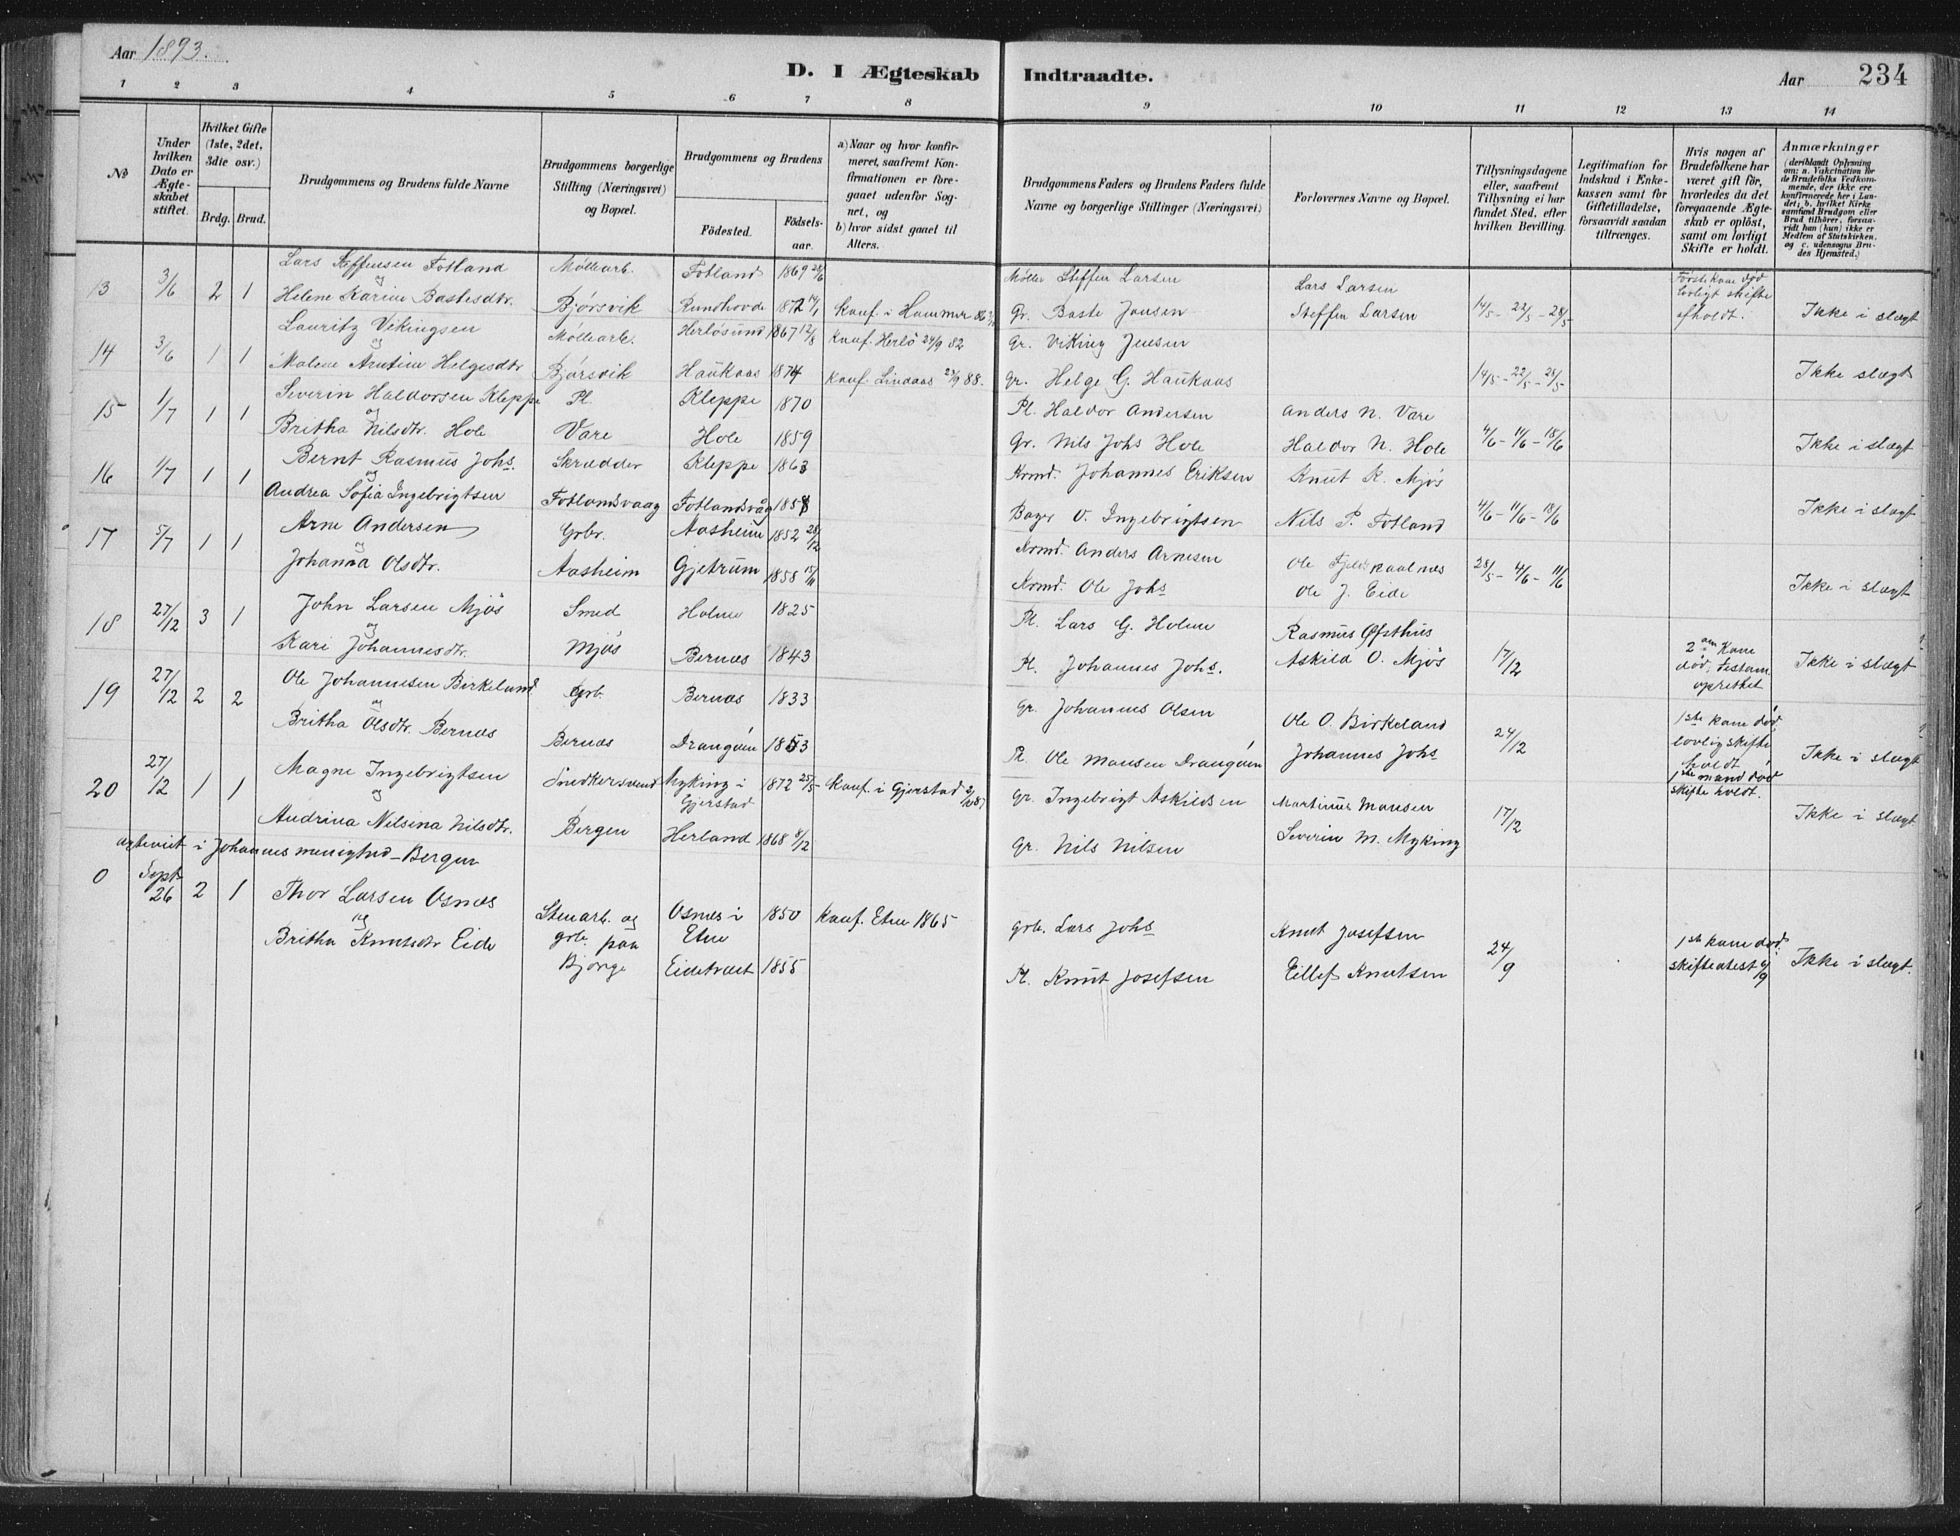 Aar 1893.
D. I Ægteskab Indtraadte.
Aar 234
1 2 3 4 5 6 7 8 9 10 11 12 13 14
No
Under hvilken Dato er Ægteskabet stiftet.
Hvilket Gifte (1ste, 2det, 3die osv.)
Brdg. Brud.
Brudgommens og Brudens fulde Navne
Brudgommens borgerlige Stilling (Næringsvei) og Bopæl.
Brudgommens og Brudens
Födested.
Födselsaar.
a) Naar og hvor konfirmeret, saafremt Konfirmationen er foregaaet udenfor Sognet, og
b) hvor sidst gaaet til Alters.
Brudgommens Faders og Brudens Faders fulde Navne og borgerlige Stillinger (Næringsvei)
Forlovernes Navne og Bopæl.
Tillysningsdagene eller, saafremt Tillysning ei har fundet Sted, efter hvilken Bevilling.
Legitimation for Indskud i Enkekassen samt for Giftetilladelse, forsaavidt saadan tiltrænges.
Hvis nogen af Brudefolkene har været gift för, hvorledes da det foregaaende Ægteskab er oplöst, samt om lovligt Skifte er holdt.
Anmærkninger
(deriblandt Oplysning om: a. Vakcination for de Brudefolks Vedkommende, der ikke ere konfirmerede her i Landet; b. hvilket Kirkesamfund Brudgom eller Brud tilhører, forsaavidt han (hun) ikke er Medlem af Statskirken, og c. udensogns Brudes Hjemsted.)
13 3/6 2 1 Lars Steffensen Fotland Möllearb. Fotland 1869 Möller Steffen Larsen Lars Larsen Förste kone död lovligt skifte afholdt.
og
Helene Karine Bastesdtr. Bjørsvik Rundhovde 1872 Konf. i Hammer Gr. Baste Jansen Steffen Larsen 14/5 - 22/5 - 28/5 Ikke i slægt
14 3/6 1 1 Lauritz Vikingsen Möllearb. Herløsund 1867 12/8 Konf. Herlö 24/9 82 Gr. Viking Jensen
og
Malene Arntine Helgesdtr Bjørsvik Haukaas 1874 Konf. Lindaas 23/9 88. Gr. Helge G. Haukaas 14/5 - 22/5 - 28/5 Ikke slægt
15 1/7 1 1 Severin Haldorsen Kleppe Pl. Kleppe 1870 Pl. Haldor Andersen Anders N. Vare
og
Britha Nilsdtr. Hole Vare Hole 1859 Gr. Nils Johs Hole Haldor N. Hole 4/6 - 11/6 - 18/6 Ikke i slægt
16 1/7 1 1 Bernt Rasmus Johs. Skrædder Kleppe 1863 Krmd. Johannes Eriksen Knut K. Mjøs
og
Andrea Sofia Ingebrigtsen Fotlandsvaag Fotlandsvåg 1858 Bager V. Ingebrigtsen Nils P. Fotland 4/6 - 11/6 - 18/6 Ikke i slægt
17 5/7 1 1 Arne Andersen Grbr. Aasheim 1852 28/12 Krmd. Anders Arnesen
og
Johanna Olsdtr. Aasheim Gjetrum 1858 Krmd. Ole Johs Ole J. Eide 28/5 - 4/6 - 11/6 Ikke i slægt
18 27/12 3 1 John Larsen Mjøs Smed Holme 1825 Pl. Lars G. Holme Rasmus Øfsthus
og
Kari Johannesdtr. Mjøs Bernæs 1843 Pl. Johannes Johs. Askild O. Mjøs 17/12 2den Kone död. Testam. oprettet Ikke i slægt
19 27/12 2 2 Ole Johannesen Birkeland Grb. Bernæs 1833 Gr. Johannes Olsen Ole O. Birkeland
og
Britha Olsdtr. Bernæs Bernæs Drangeim 1853 Pl. Ole Monsen Drangeim Johannes Johs 24/12 1ste kone död lovlig skifte holdt 1ste mand död skifte holdt. Ikke i slægt
20 27/12 1 1 Magne Ingebrigtsen Snedkersvend Myking i Gjerstad 1872 25/5 Konf. i Gjerstad Gr. Ingebrigt Askildsen Martinus Monsen
og
Andrina Nilsena Nilsdtr. Bergen Herland 1868 8/12 Gr. Nils Nilsen Severin M. Myking 17/12 Ikke i slægt
agteviet i Johannes menighed - Bergen
0 Sept 26 2 1 Thor Larsen Osnæs Stenarb. og grb. paa Bjørge Osnæs i Etne 1850 Konf. Etne 1865 Grb. Lars Johs Knut Josefsen
og
Britha Knutsdtr Eide Eidetræet 1855 Pl. Knut Josefsen Eillef Knutsen 24/9 1ste kone död. skifteatest 6/9 Ikke i slægt.